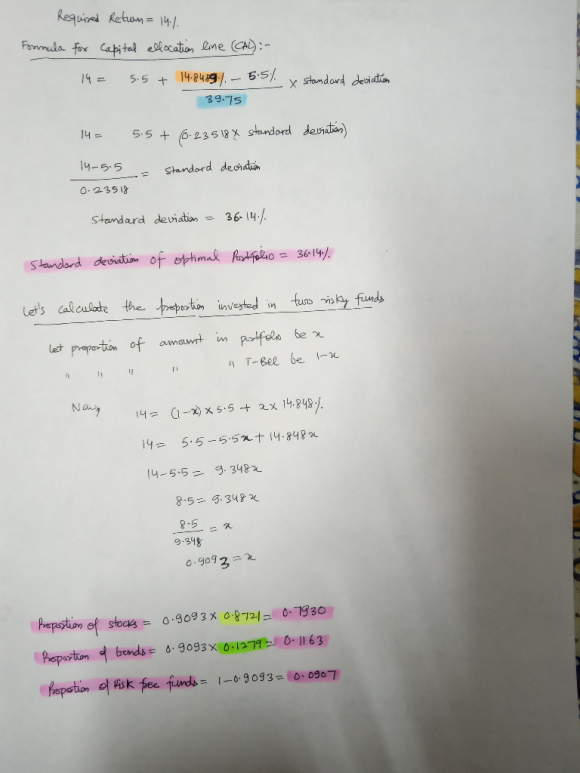 Required Return = 14%
Formula for Capital allocation line (CAL):-
14 = 5.5 + 14.8489% - 5.5% / 39.75 × standard deviation
14 = 5.5 + (0.23518 × standard deviation)
14-5.5 / 0.23518 = standard deviation
Standard deviation = 36.14%
Standard deviation of optimal Portfolio = 36.14%
Let's calculate the proportion invested in two risky funds
Let proportion of amount in portfolio be x
" " " " " T-Bill be 1-x
Now, 14 = (1-x) × 5.5 + x × 14.848%
14 = 5.5 - 5.5x + 14.848x
14-5.5 = 9.348x
8.5 = 9.348x
8.5 / 9.348 = x
0.9093 = x
Proportion of stocks = 0.9093 × 0.8721 = 0.7930
Proportion of bonds = 0.9093 × 0.1279 = 0.1163
Proportion of Risk free funds = 1-0.9093 = 0.0907